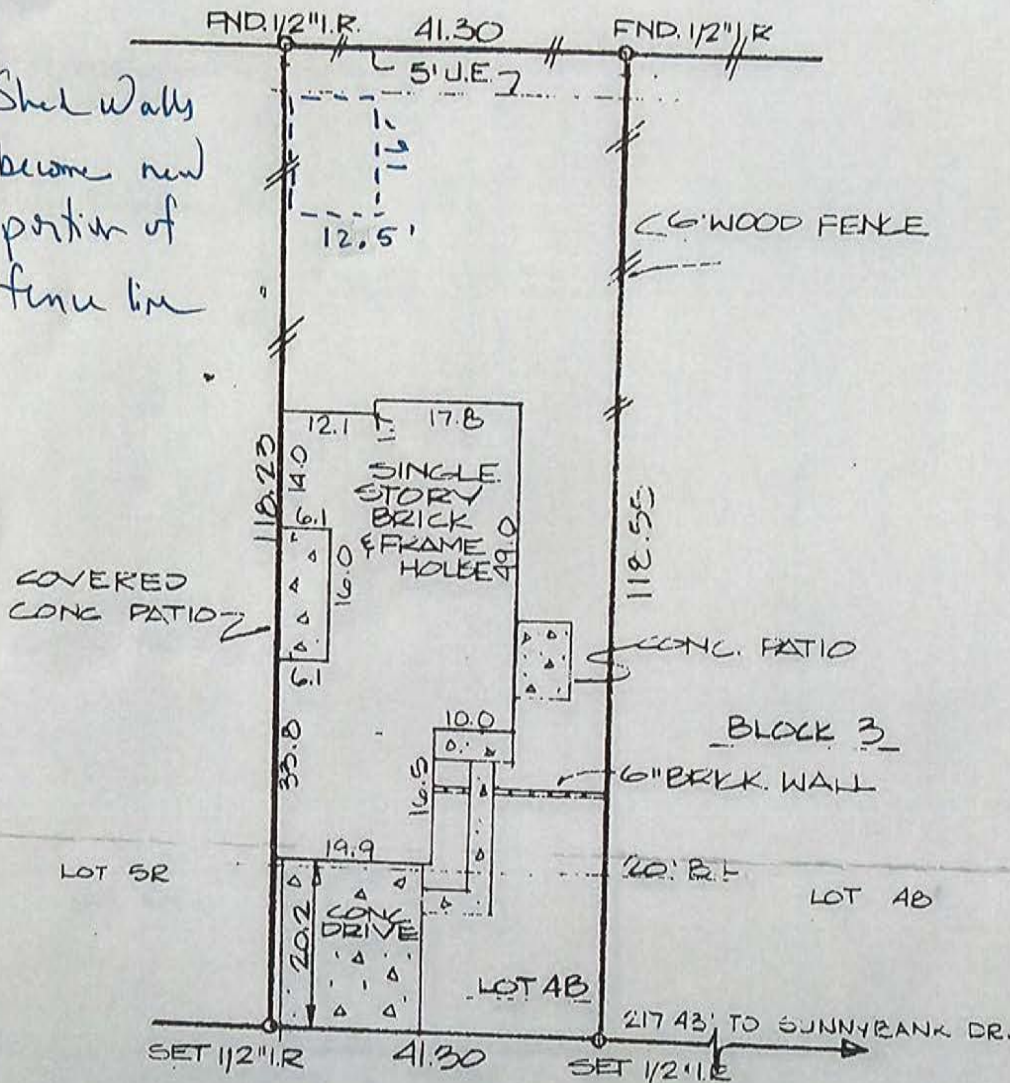 FND. 1/2" I.R. 41.30 FND. 1/2" I.R
5' U.E.
Shed Walls
become new
portion of
fence line
16'
12.5'
6' WOOD FENCE
12.1 1.1 17.8
118.23
14.0
SINGLE
STORY
BRICK
& FRAME
HOUSE
49.0
118.55
6.1
16.0
COVERED
CONC PATIO
6.1
CONC. PATIO
33.8
10.0
BLOCK 3
16.5
6" BRICK WALL
19.9
LOT 5R
20' B.L
LOT 4B
CONC
DRIVE
20.2
LOT 4B
217.43' TO SUNNYBANK DR.
SET 1/2" I.R 41.30 SET 1/2" I.R